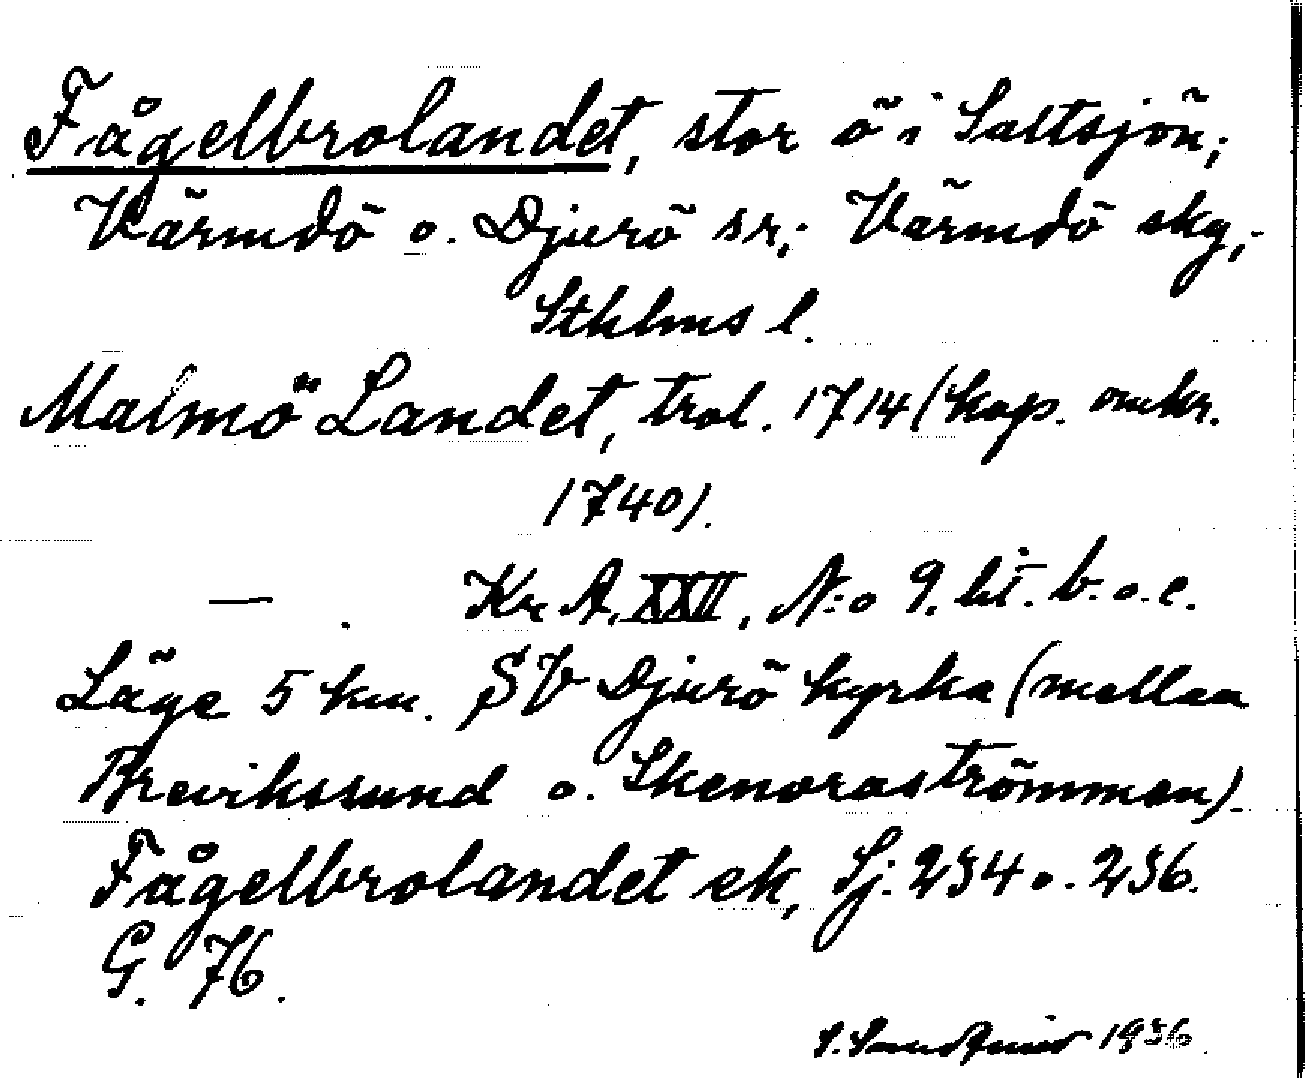 Fågelbrolandet, stor ö i Saltsjön;
Värmdö o. Djurö sr; Värmdö skg,
Sthlms l.
Malmö Landet, trol. 1714 (kop. omkr.
1740).
— . Kr A, XXII, N:o 9. lit. b. o. c.
Läge 5 km. SV Djurö kyrka (mellan
Brevikssund o. Skenoraströmmen).
Fågelbrolandet ek, Sj. 234 o. 236.
G. 76.
1936.